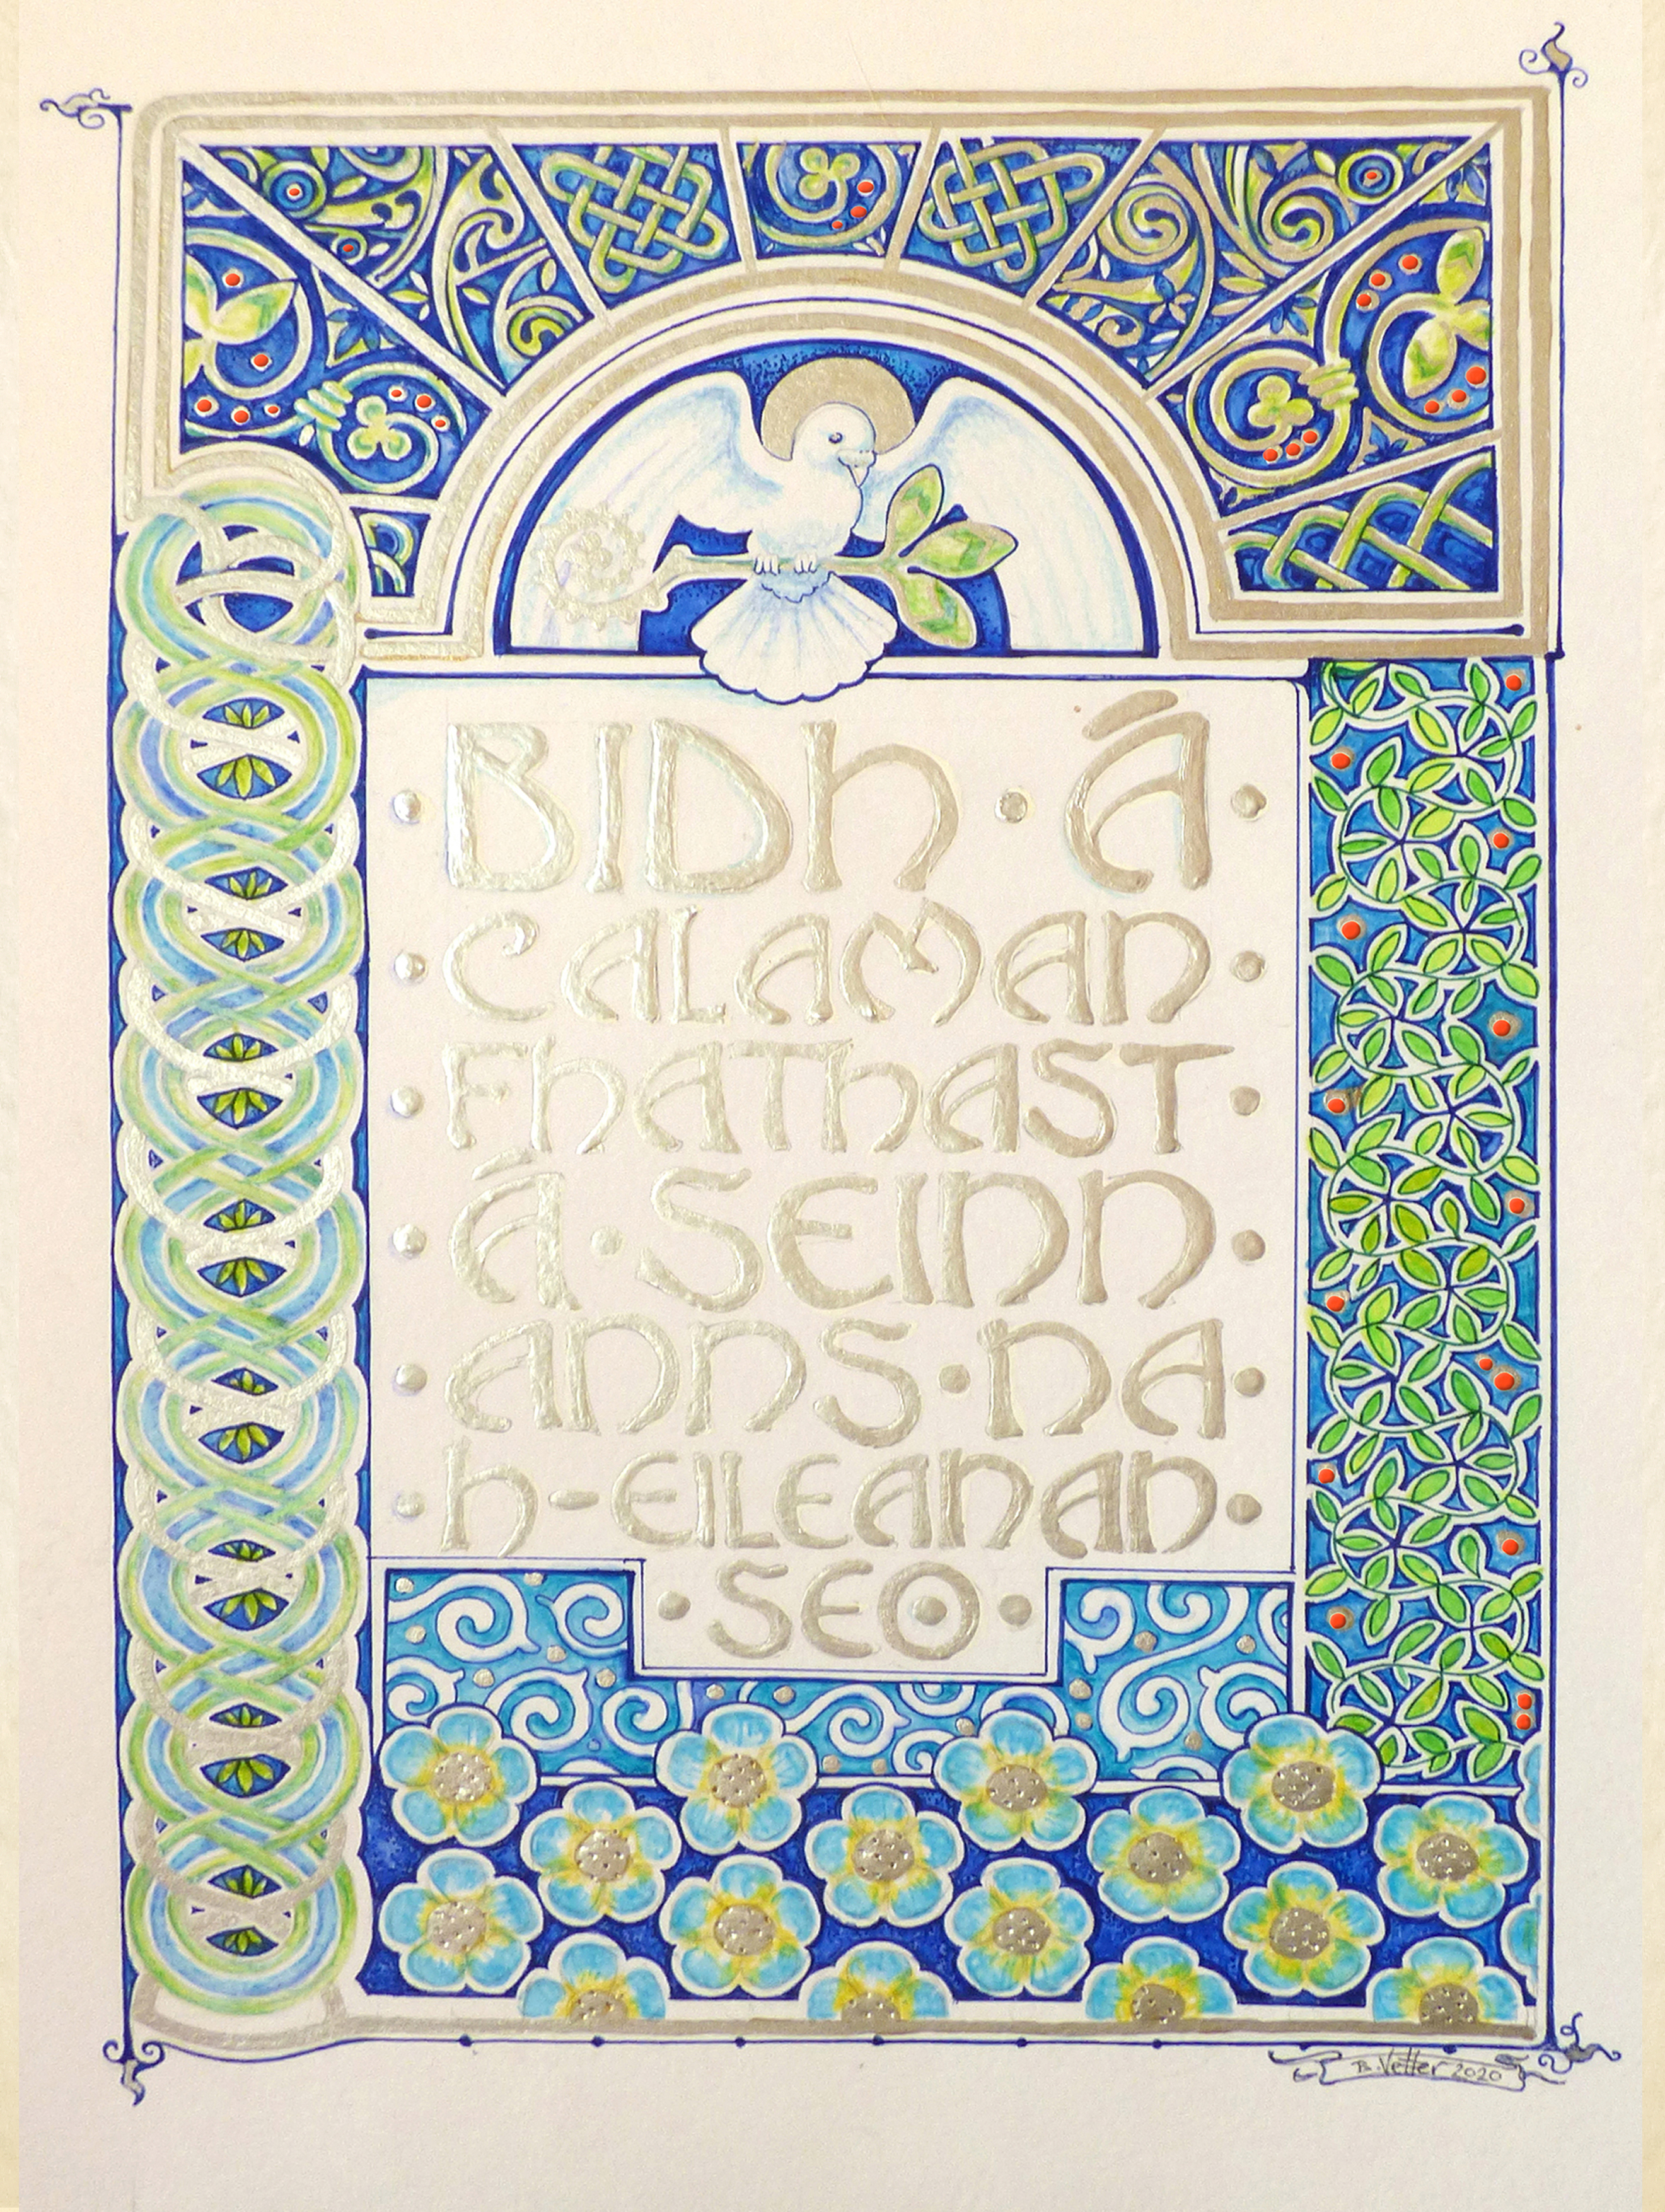 BIDH · Á
CALAMAN
FHATHAST
Á · SEINN
ANNS · NA
H-EILEANAN
SEO
B. Vetter 2020